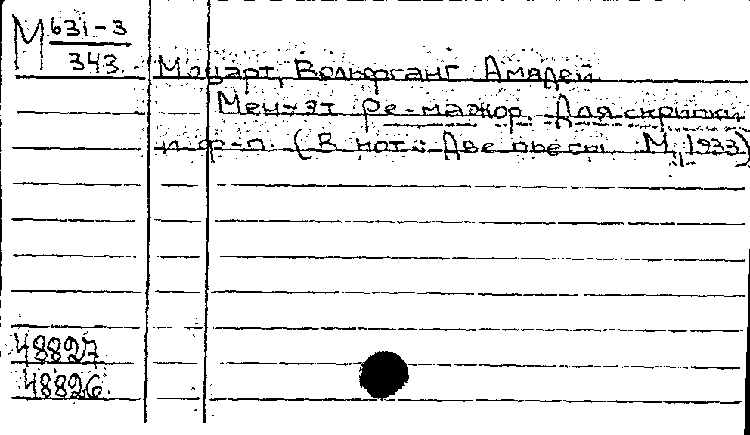 М 631-3
343
Моцарт, Вольфганг Амадей
Менуэт ре-мажор. Для скрипки
и ф-п. (В нот.: Две пьесы. М., 1933)
48827
48826.